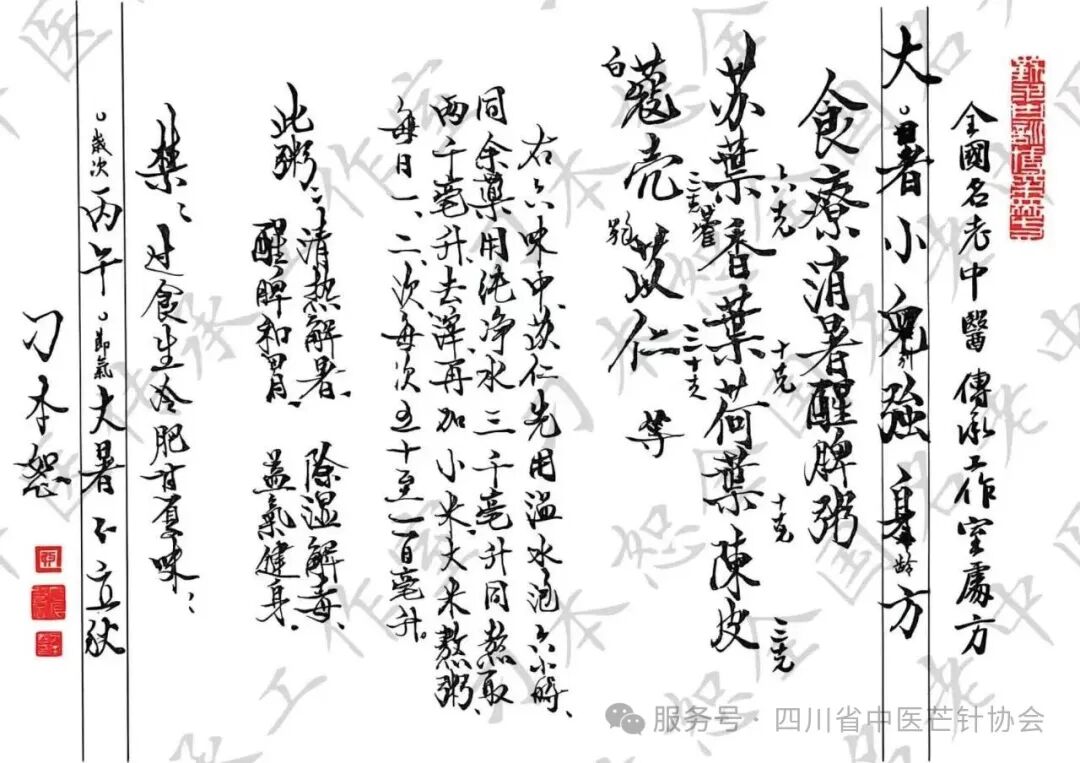 全國名老中醫傳承工作室處方
大暑小兒強身方
食療消暑醒脾粥
六克 十克 十克 三克
苏葉香葉荷葉陳皮
三克 藿 三十克
白蔻壳苡仁等
右六味中苡仁先用温水泡六小時、
同余藥用纯净水三千毫升同熬取
兩千毫升去滓再加小米大米熬粥、
每日一、二次每次五十至一百毫升。
此粥：清热解暑、除湿解毒、
醒脾和胃、益氣健身、
禁：过食生冷肥甘夏味：
歲次丙午節氣大暑
刁本恕
服务号·四川省中医芒针协会